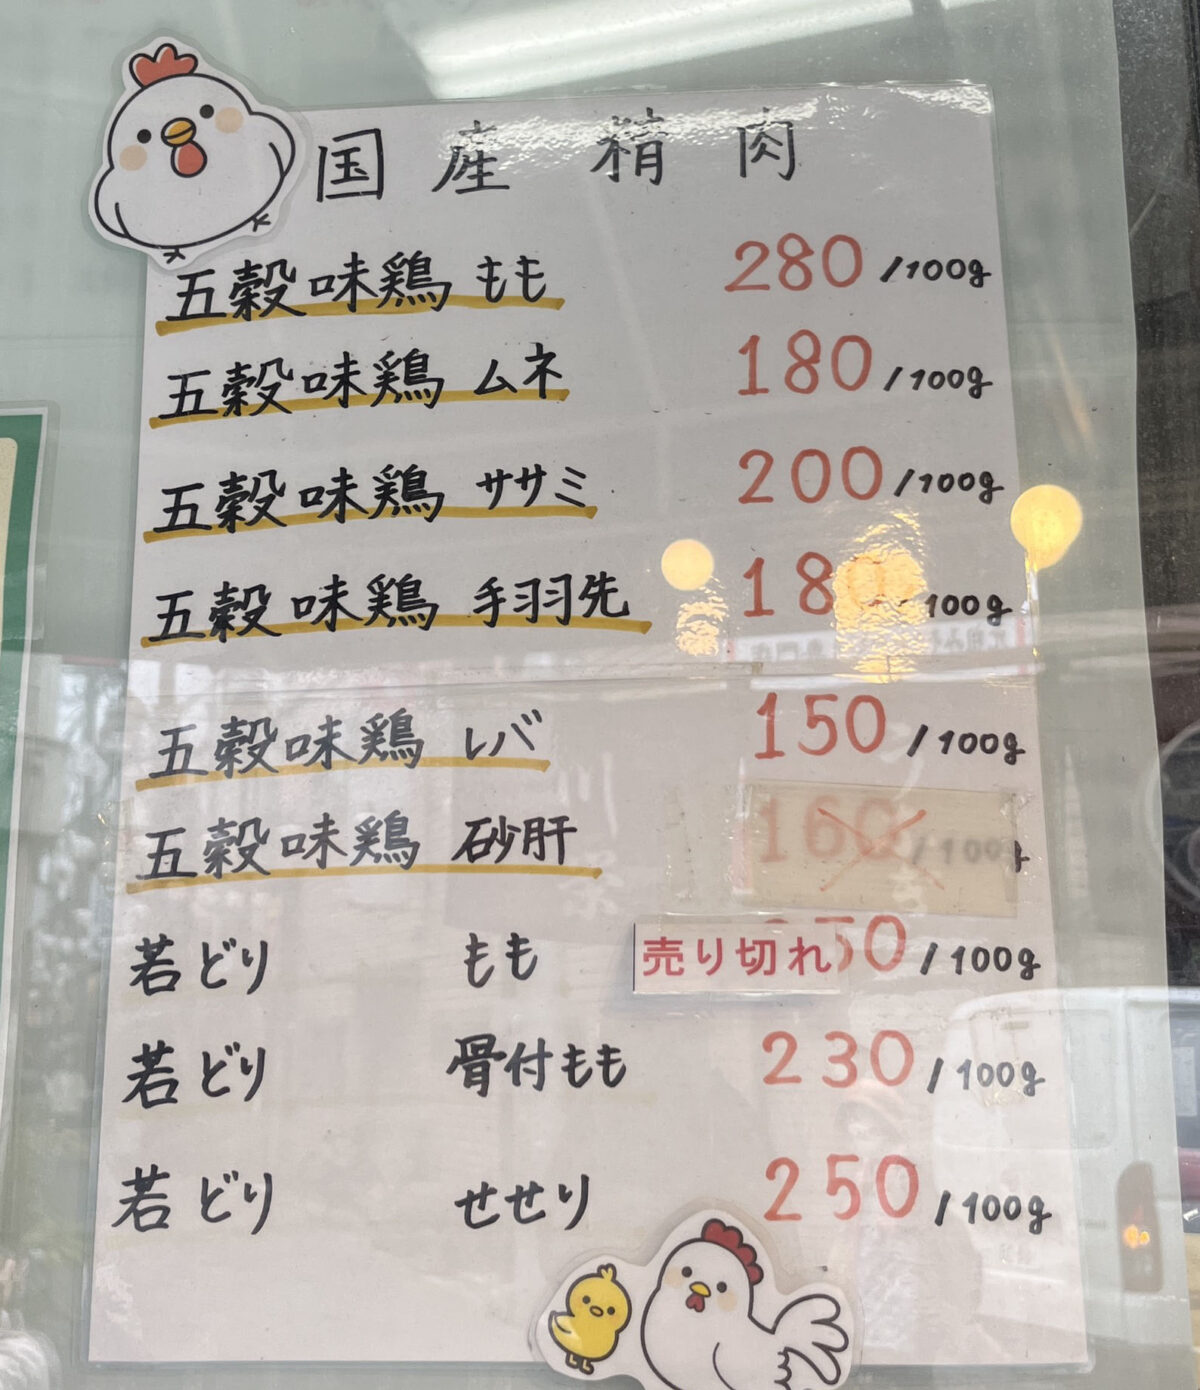 国産精肉
五穀味鶏 もも 280/100g
五穀味鶏 ムネ 180/100g
五穀味鶏 ササミ 200/100g
五穀味鶏 手羽先 180/100g
五穀味鶏 レバ 150/100g
五穀味鶏 砂肝 160/100g
若どり もも 売り切れ 50/100g
若どり 骨付もも 230/100g
若どり せせり 250/100g